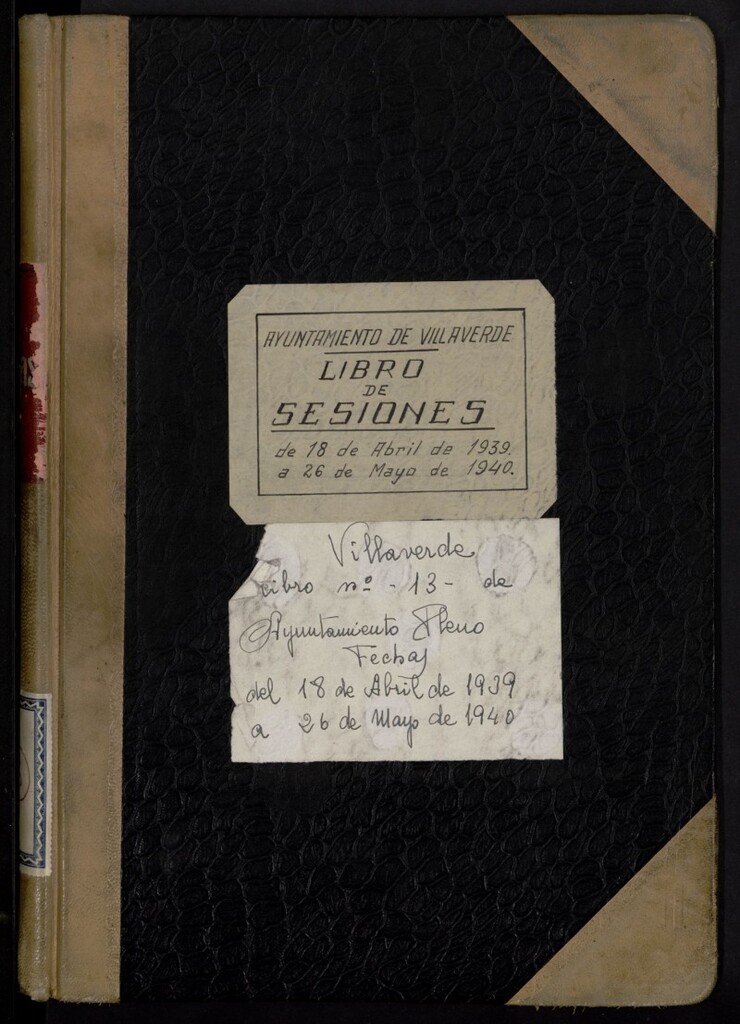 AYUNTAMIENTO DE VILLAVERDE
LIBRO
DE
SESIONES
de 18 de Abril de 1939.
a 26 de Mayo de 1940.
Villaverde
Libro nº - 13 - de
Ayuntamiento Pleno
Fechas
del 18 de Abril de 1939
a 26 de Mayo de 1940